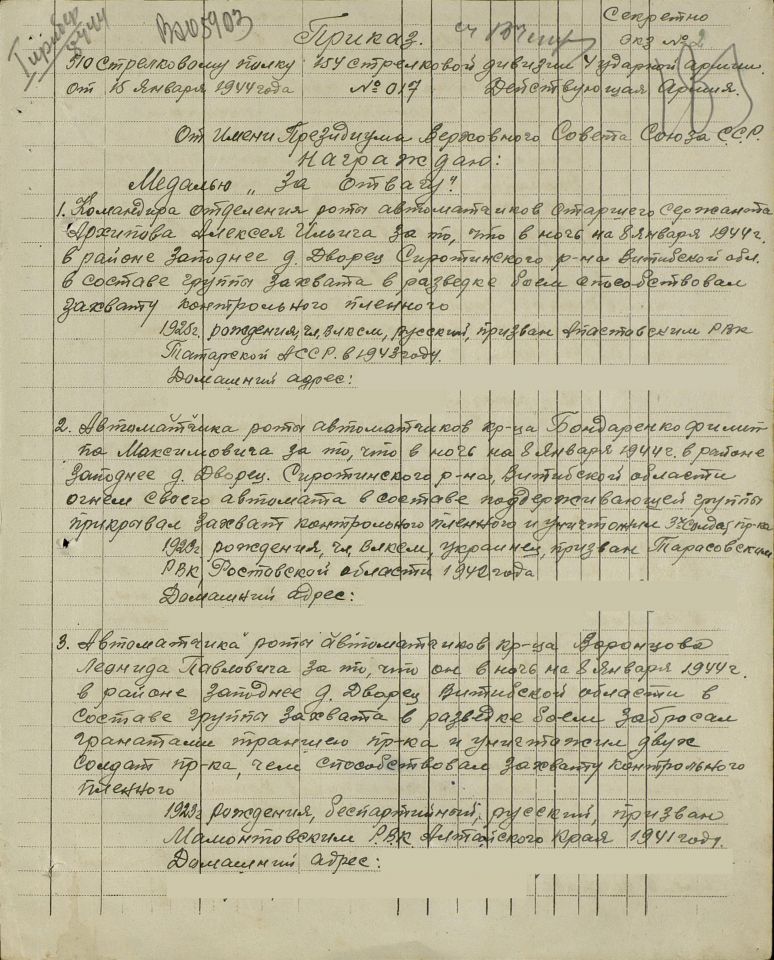 Секретно
экз № 2
В2105903
Приказ.
510 Стрелковому полку 154 стрелковой дивизии 4 ударной Армии.
от 15 Января 1944 года № 017 Действующая Армия.
От имени Президиума Верховного Совета Союза ССР.
Награждаю:
Медалью „За отвагу"
1. Командира отделения роты автоматчиков старшего сержанта
Архипова Алексея Ильича за то, что в ночь на 8 Января 1944 г.
в районе Западнее д. Дворец Сиротинского р-на Витибской обл.
в составе группы захвата в разведке боем способствовал
захвату контрольного пленного
1925г. рождения, чл. ВЛКСМ, русский, призван Апастовским РВК
Татарской АССР. в 1943 году.
Домашний адрес:
2. Автоматчика роты автоматчиков кр-ца Бондаренко Филип
па Максимовича за то, что в ночь на 8 Января 1944 г. в районе
Западнее д. Дворец. Сиротинского р-на, Витибской области
огнем своего автомата в составе поддерживающей группы
прикрывал захват контрольного пленного и уничтожил 3х солдат пр-ка
1923г рождения, чл ВЛКСМ, украинец, призван Тарасовским
РВК Ростовской области 1942 года
Домашний адрес:
3. Автоматчика роты автоматчиков кр-ца Воронцова
Леонида Павловича за то, что он в ночь на 8 Января 1944 г.
в районе Западнее д. Дворец Витибской области в
составе группы захвата в разведке боем забросал
гранатами траншею пр-ка и уничтажил двух
солдат пр-ка, чем способствовал захвату контрольного
пленного
1923г рождения, беспартийный, русский, призван
Мамонтовским РВК Алтайского края 1941 году.
Домашний адрес: